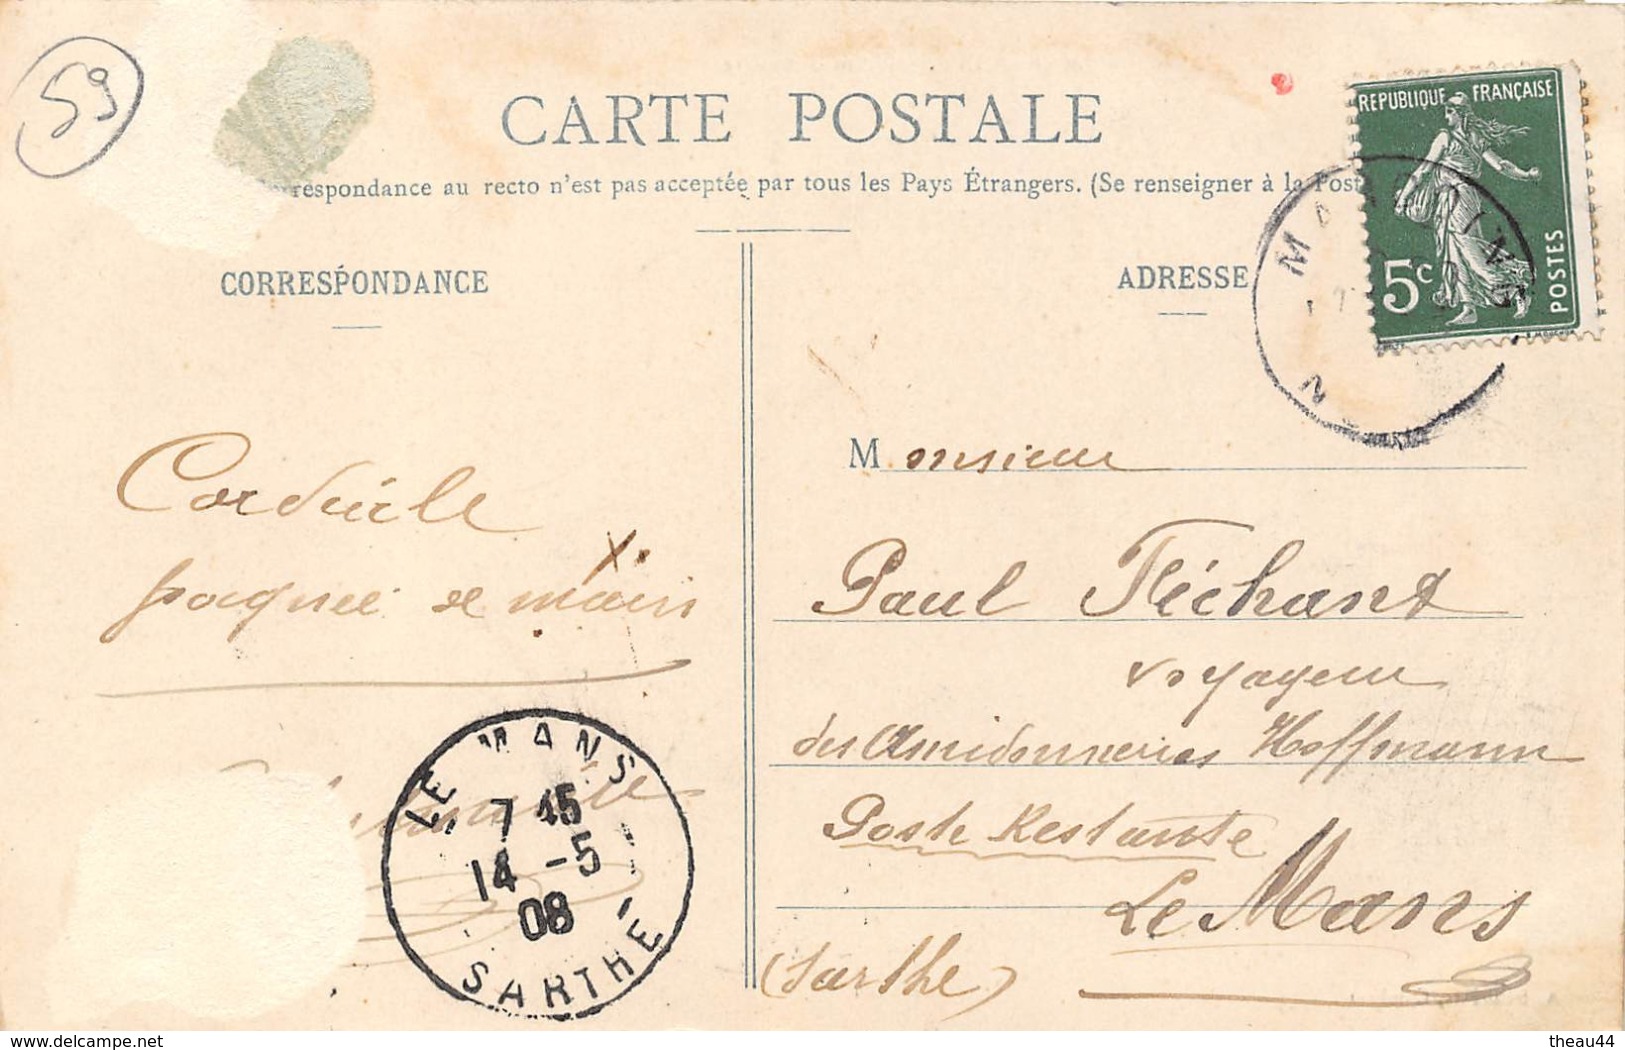 59
CARTE POSTALE
respondance au recto n'est pas acceptée par tous les Pays Étrangers. (Se renseigner à la Post
REPUBLIQUE FRANÇAISE
5c
POSTES
CORRESPONDANCE
ADRESSE
Cordiale
poignée de main
LE MANS
7 45
14 -5
08
SARTHE
Monsieur
Paul Fléchant
voyageur
des Amidonneries Hoffmann
Poste Restante
Le Mans
(Sarthe)
delcampe.net
theau44